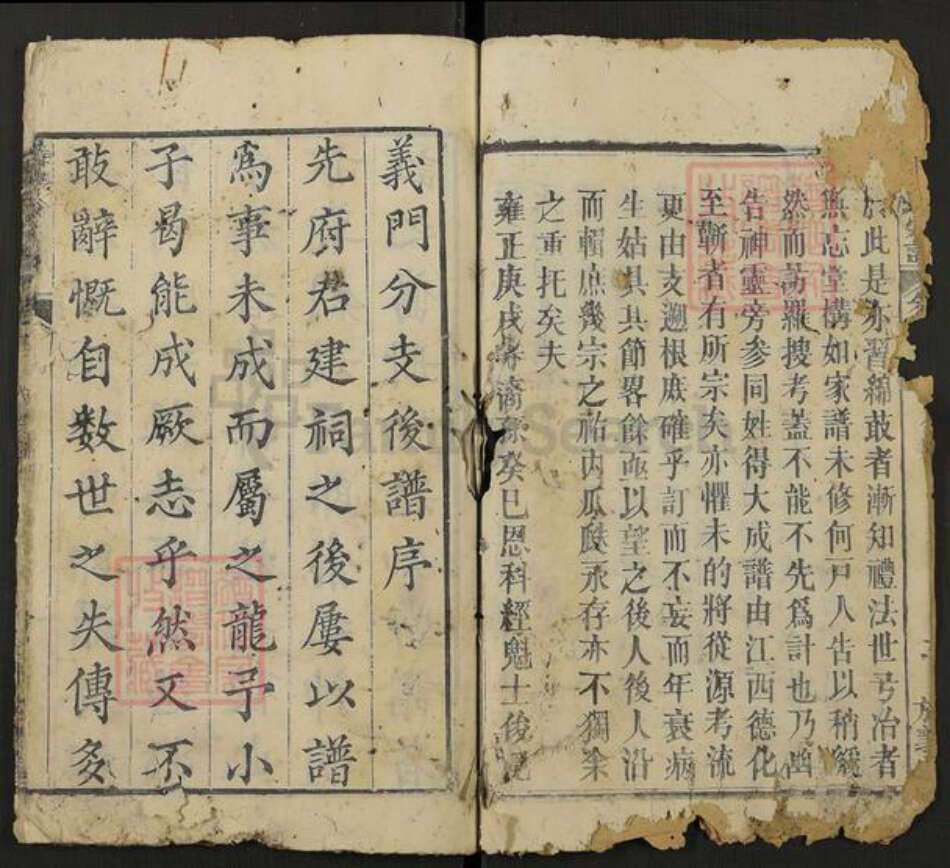 於此是亦習綿蕞者漸知禮法世弓冶者
無忘堂構如家譜未修何尸人告以稍緩
然而茘羅搜考蓋不能不先爲計也乃幽
告神靈旁參同姓得大成譜由江西德化
至蘄者有所宗矣亦懼未的將從源考流
更由支遡根庶確乎訂而不妄而年衰病
生姑具其節畧餘亟以望之後人後人沿
而輯庶幾宗之祐丙瓜瓞永存亦不獨余
之重托矣夫
雍正庚戌癸巳恩科經魁士俊
義門分支後譜序
先府君建祠之後屢以譜
爲事未成而屬之龍予小
子曷能成厥志乎然又不
敢辭慨自數世之失傳多